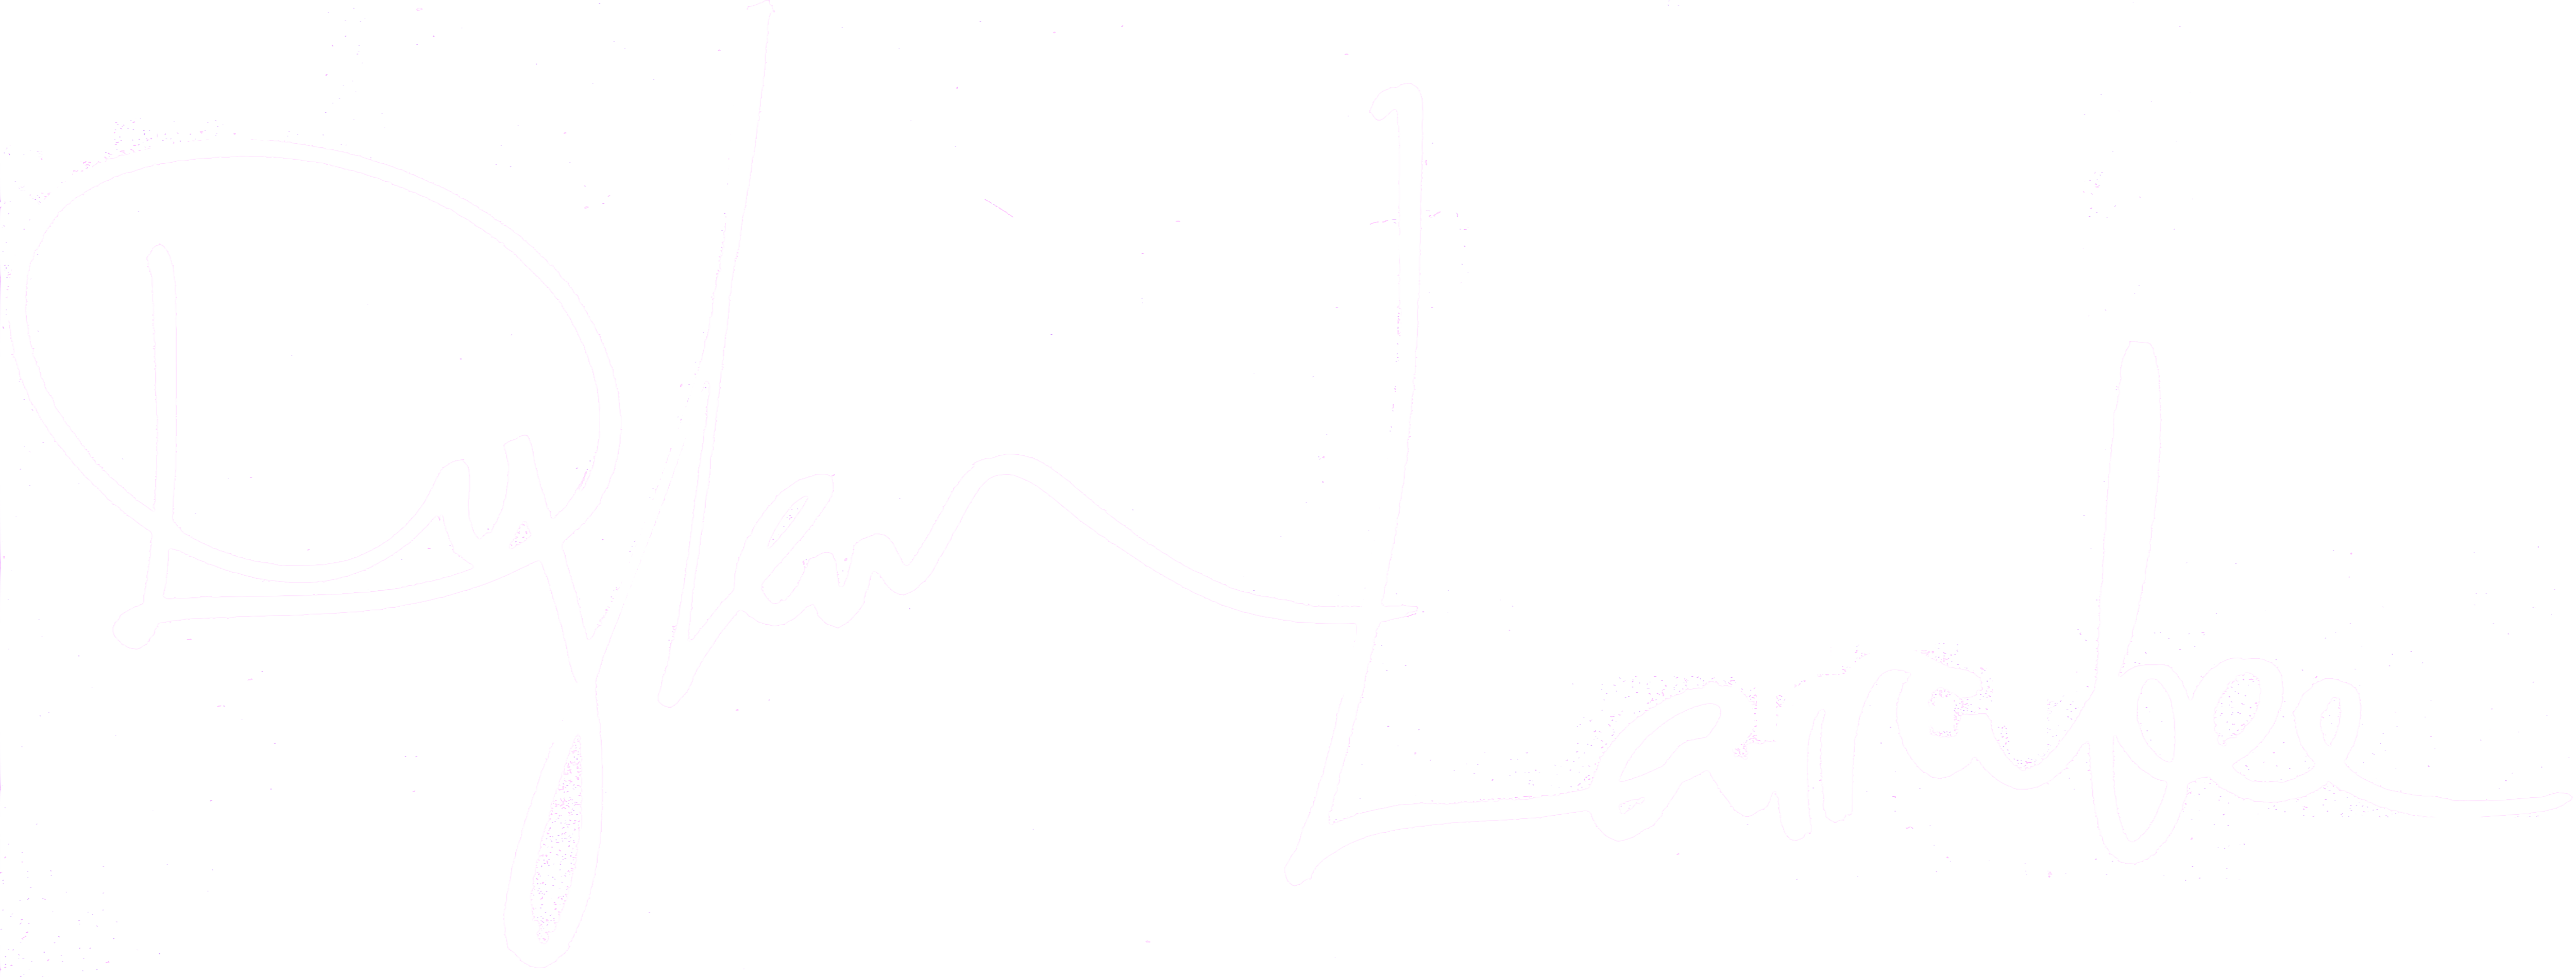 Dylan Larrabee